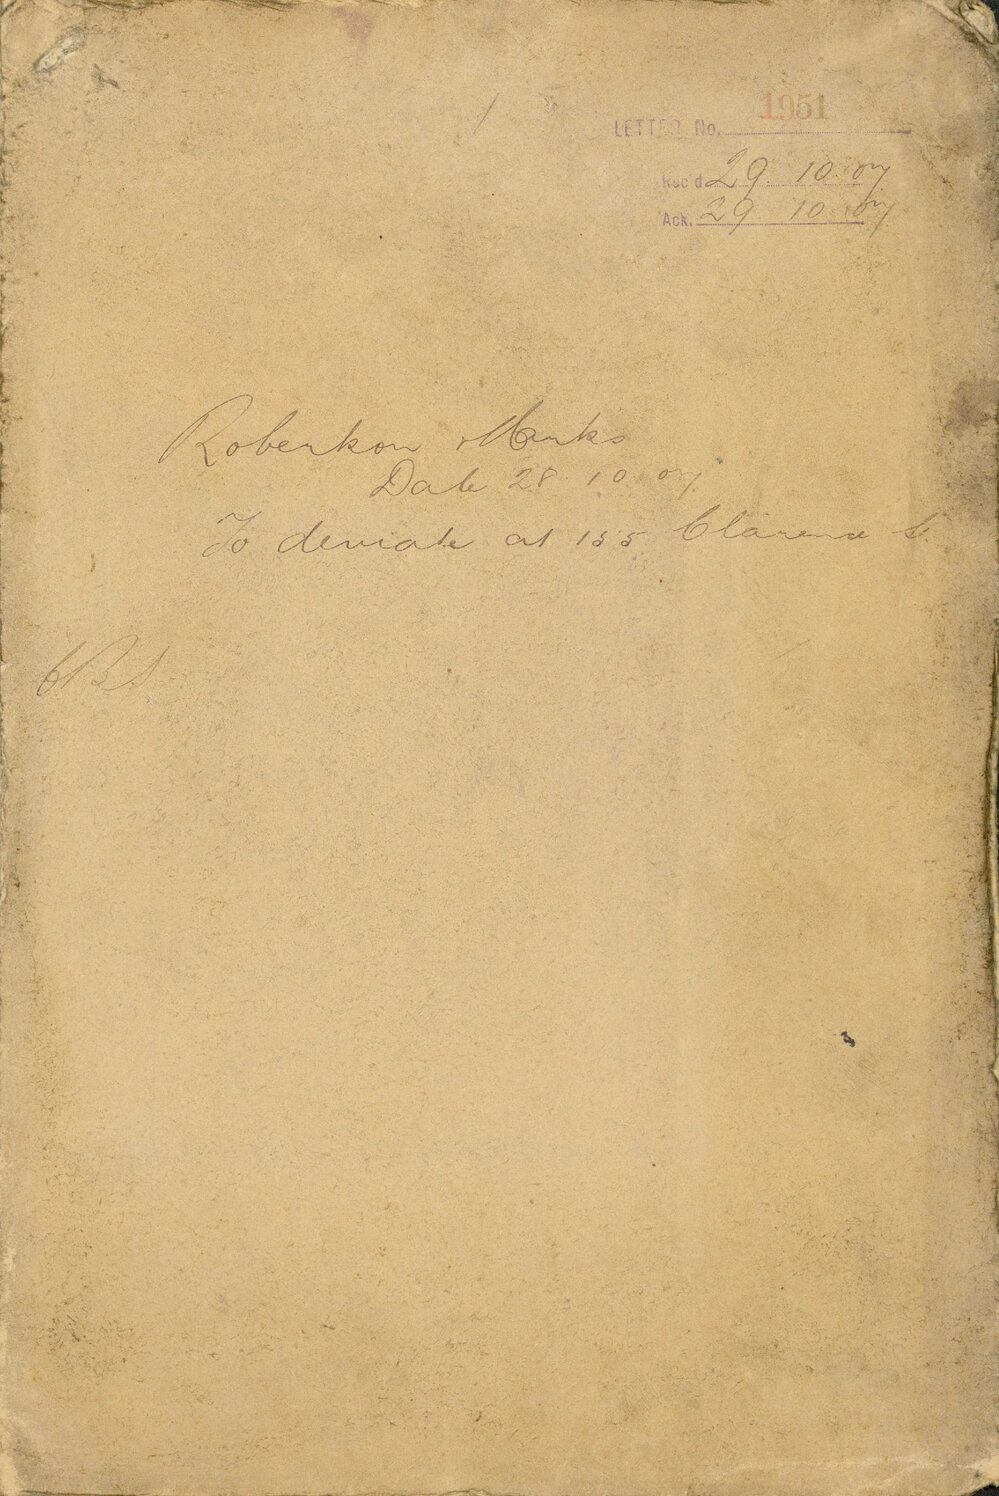 LETTER No. 1951
Rec'd 29 10 07
Ack. 29 10 07
Robertson & Marks
Date 28 10 07
To deviate at 155 Clarence St